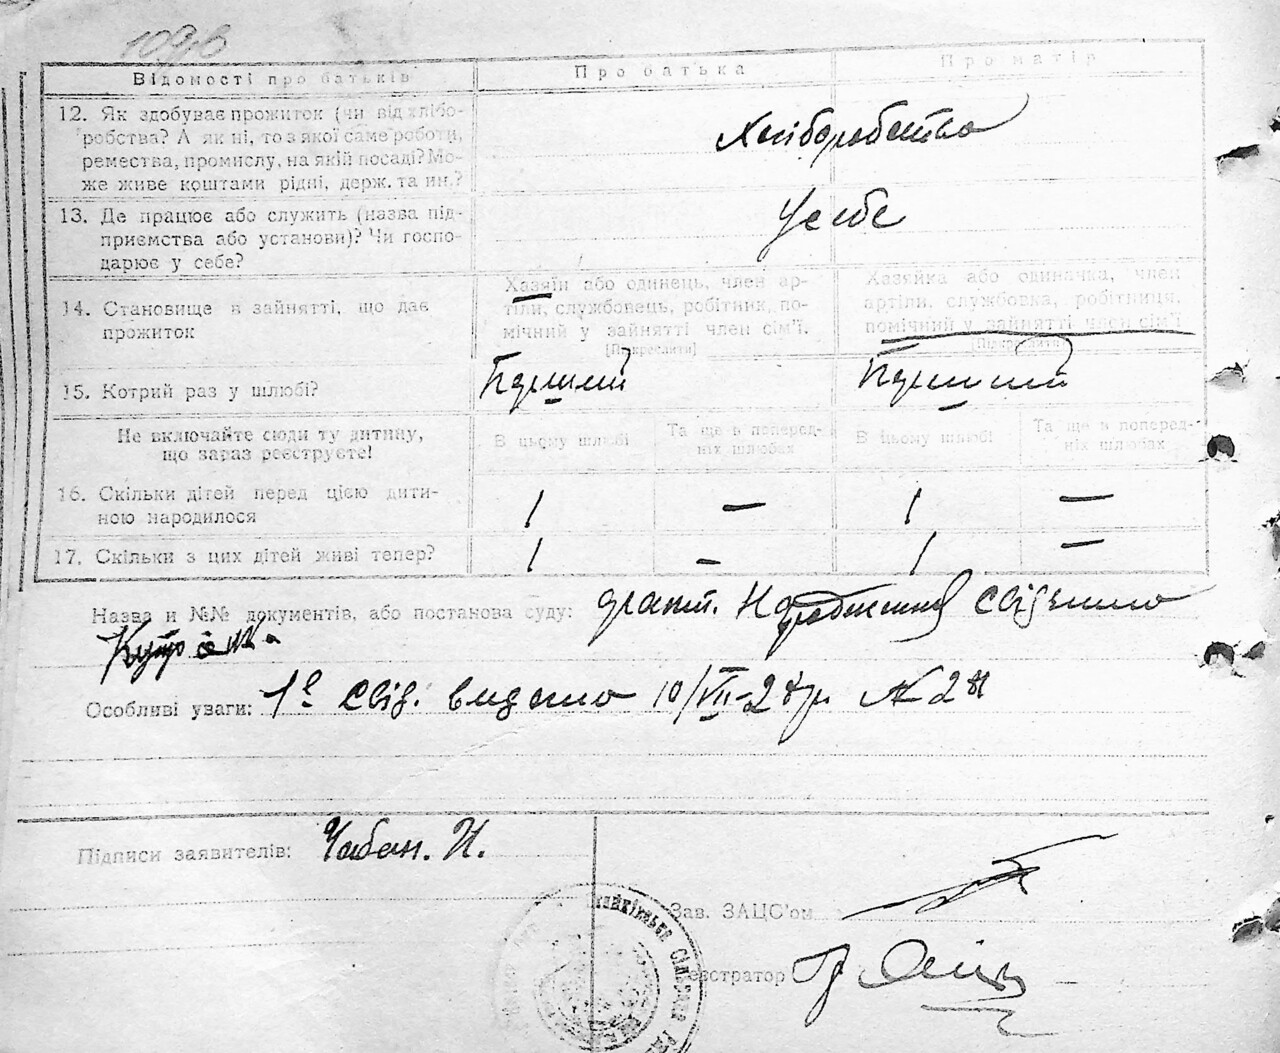 109,6
Відомості про батьків Про батька Про матір
12. Як здобуває прожиток (чи від хлібо-
робства? А як ні, то з якої саме роботи,
ремества, промислу, на якій посаді? Мо-
же живе коштами рідні, держ. та ин.?
Хліборобство
13. Де працює або служить (назва під-
приємства або установи)? Чи госпо-
дарює у себе?
У себе
14. Становище в зайнятті, що дає
прожиток
Хазяїн або одинець, член ар-
тіли, службовець, робітник, по-
мічний у зайнятті член сім'ї.
[Підкреслити]
Хазяйка або одиначка, член
артіли, службовка, робітниця,
помічний у зайнятті член сім'ї
[Підкреслити]
15. Котрий раз у шлюбі? Перший Перший
Не включайте сюди ту дитину,
що зараз реєструєте!
В цьому шлюбі
Та ще в поперед-
ніх шлюбах
В цьому шлюбі
Та ще в поперед-
ніх шлюбах
16. Скільки дітей перед цією дити-
ною народилося
1 — 1 —
17. Скільки з цих дітей живі тепер? 1 — 1 —
Назва и №№ документів, або постанова суду: Народження свідчило
Особливі уваги: свід. видано 10/VII-28р. № 281
Підписи заявителів: Чабан. И.
Зав. ЗАЦС'ом
Реєстратор